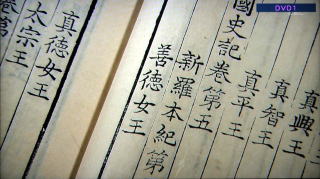 DVD1
真興王
真智王
真平王
國史記卷第五
新羅本紀第
善德女王
真德女王
太宗王
卷第